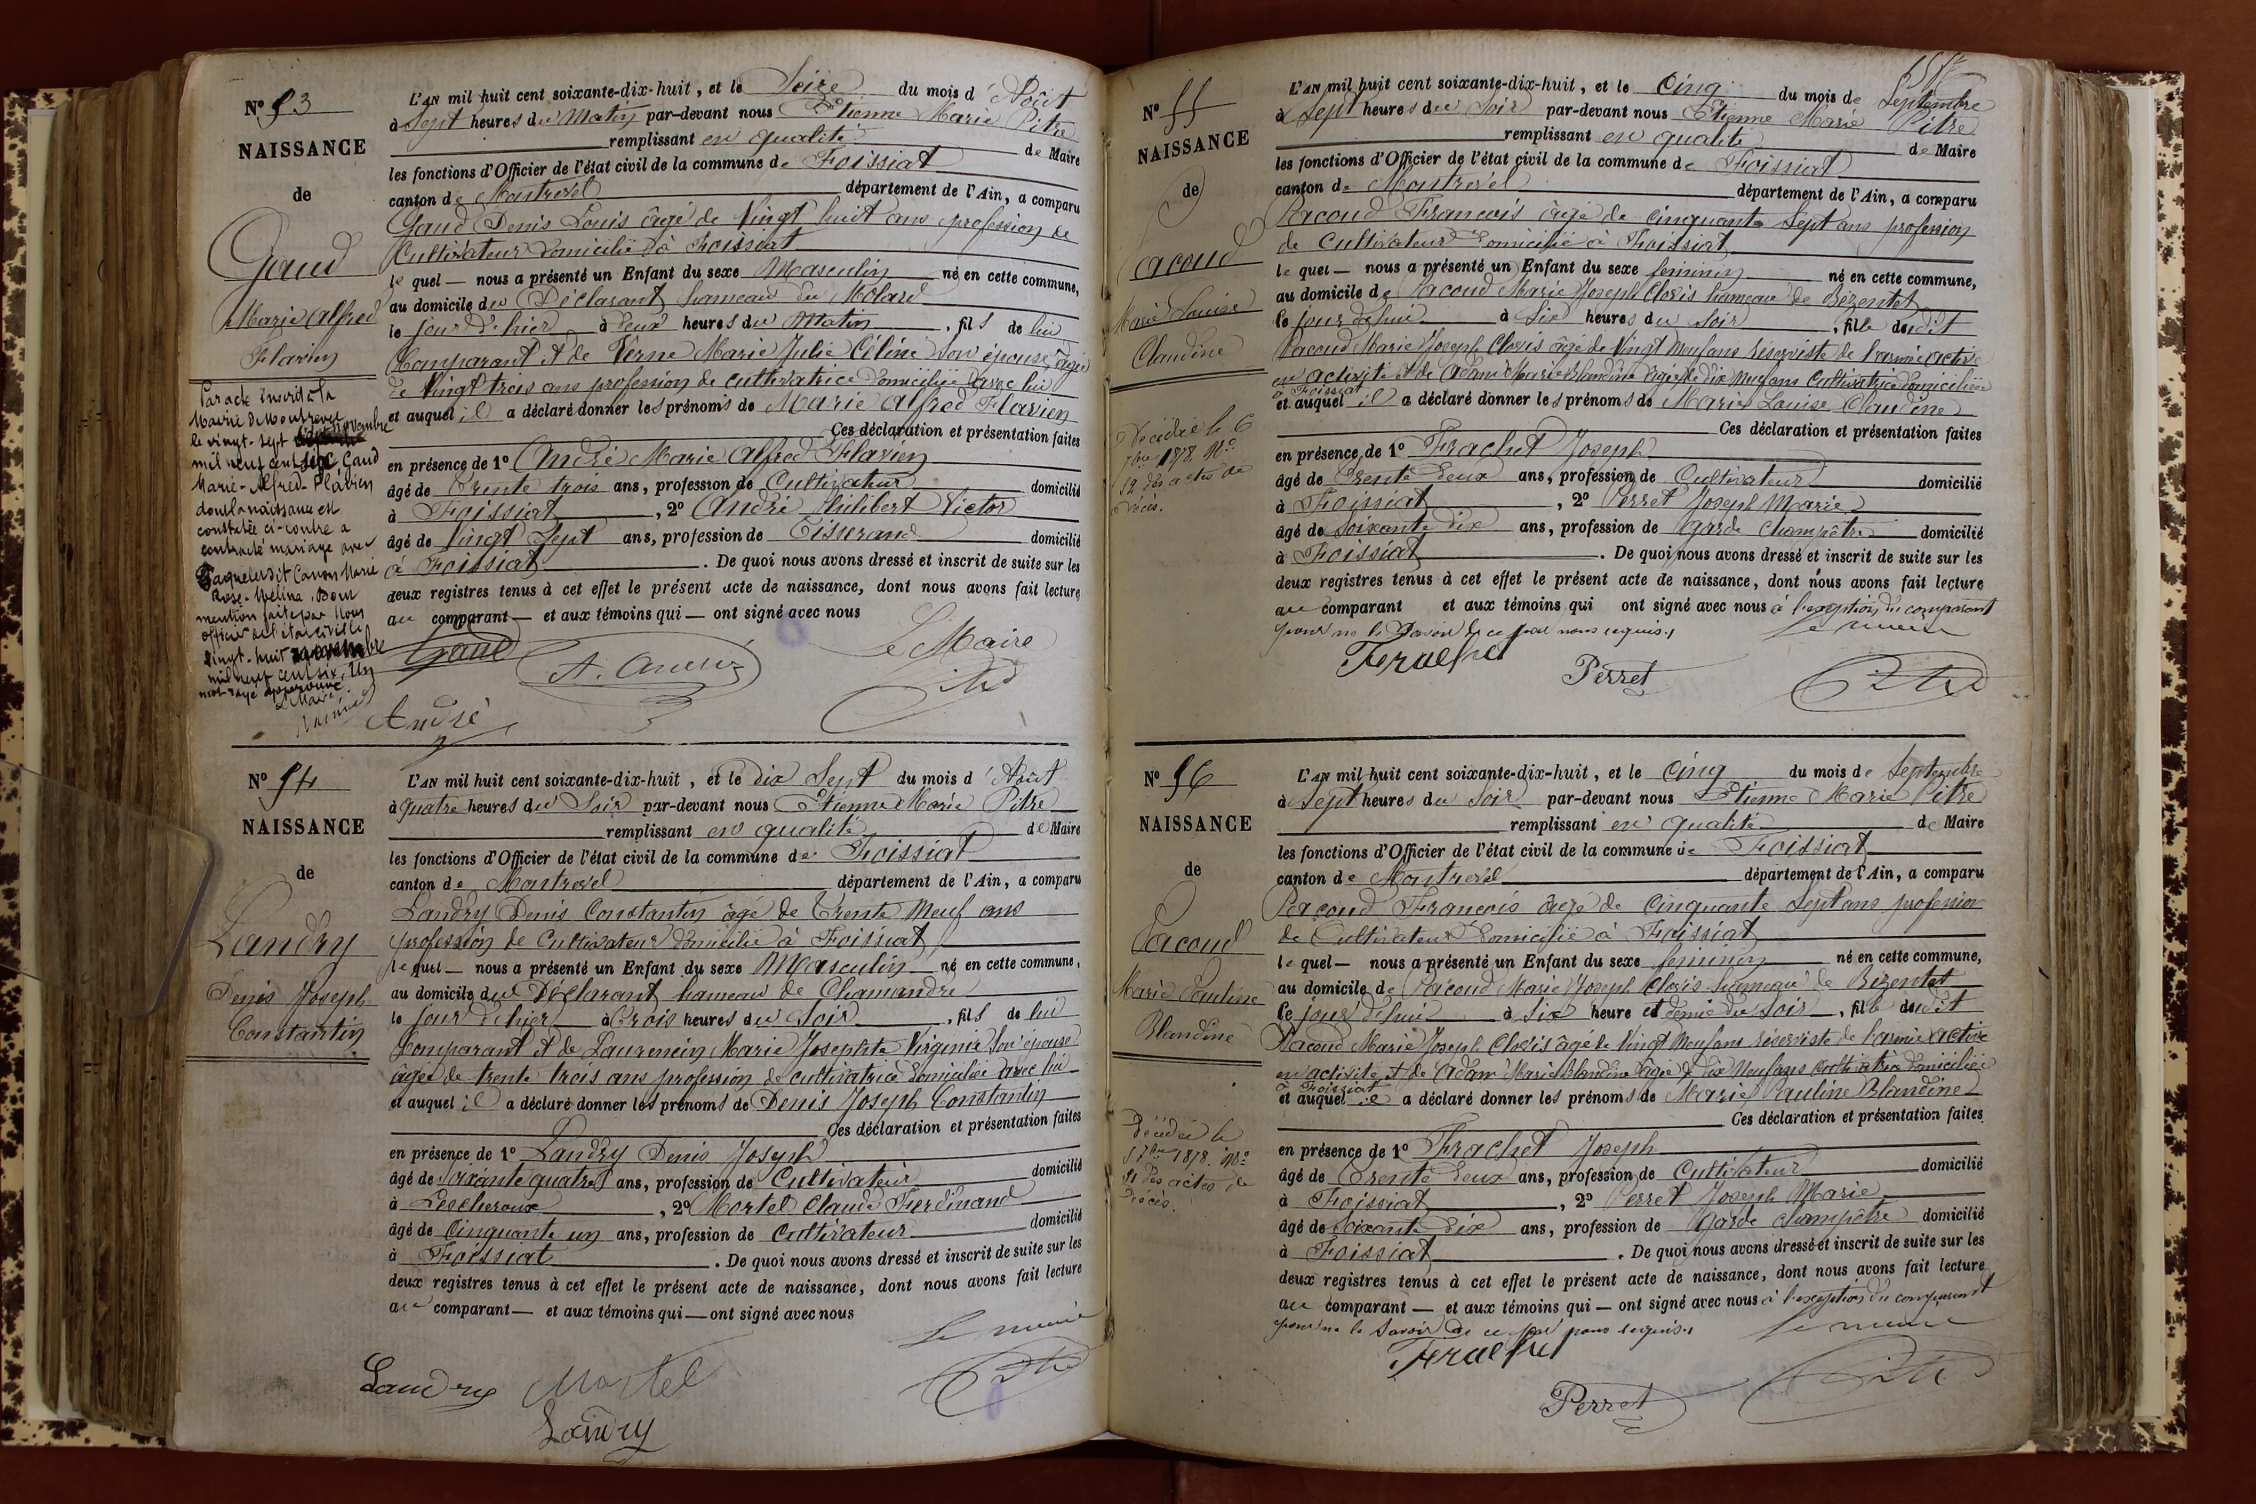 N° 53
NAISSANCE
de
Gaud
Marie Alfred
Flavien
Par acte inscrit à la
Mairie de Montrevel
le vingt-sept novembre
mil neuf cent six Gaud
Marie-Alfred-Flavien
dont la naissance est
constatée ci-contre a
contracté mariage avec
Marie
Rose-Mélina. Dont
mention faite par Nous
officier de l'état civil le
vingt-huit novembre
mil neuf cent six. Un
mot rayé approuvé.
Le Maire
L'AN mil huit cent soixante-dix-huit, et le Seize du mois d'Août
à Sept heures du Matin par-devant nous Etienne Marie Pitre
remplissant en qualité de Maire
les fonctions d'Officier de l'état civil de la commune de Foissiat
canton de Montrevel département de l'Ain, a comparu
Gaud Denis Louis âgé de Vingt huit ans profession de
Cultivateur domicilié à Foissiat
lequel — nous a présenté un Enfant du sexe Masculin né en cette commune,
au domicile du Déclarant hameau du Molard
le jour d'hier à deux heures du Matin, fils de lui
Comparant et de Verne Marie Julie Céline son épouse, âgée
de Vingt trois ans profession de cultivatrice domiciliée avec lui
et auquel il a déclaré donner les prénoms de Marie Alfred Flavien
Ces déclaration et présentation faites
en présence de 1° André Marie Alfred Flavien
âgé de Trente trois ans, profession de Cultivateur domicilié
à Foissiat, 2° André Philibert Victor
âgé de Vingt Sept ans, profession de Tisserand domicilié
à Foissiat. De quoi nous avons dressé et inscrit de suite sur les
deux registres tenus à cet effet le présent acte de naissance, dont nous avons fait lecture
au comparant — et aux témoins qui — ont signé avec nous
Gaud
A. André
Le Maire
Pitre
André
N° 54
NAISSANCE
de
Landry
Denis Joseph
Constantin
L'AN mil huit cent soixante-dix-huit, et le dix Sept du mois d'Août
à quatre heures du Soir par-devant nous Etienne Marie Pitre
remplissant en qualité de Maire
les fonctions d'Officier de l'état civil de la commune de Foissiat
canton de Montrevel département de l'Ain, a comparu
Landry Denis Constantin âgé de Trente Neuf ans
profession de Cultivateur domicilié à Foissiat
lequel — nous a présenté un Enfant du sexe Masculin né en cette commune,
au domicile du Déclarant hameau de Chamandre
le jour d'hier à Trois heures du Soir, fils de lui
Comparant et de Laurencin Marie Josephte Virginie son épouse
âgée de trente trois ans profession de cultivatrice domiciliée avec lui
et auquel il a déclaré donner les prénoms de Denis Joseph Constantin
Ces déclaration et présentation faites
en présence de 1° Landry Denis Joseph
âgé de soixante quatre ans, profession de Cultivateur domicilié
à Lescheroux, 2° Mortel Claude Ferdinand
âgé de Cinquante un ans, profession de Cultivateur domicilié
à Foissiat. De quoi nous avons dressé et inscrit de suite sur les
deux registres tenus à cet effet le présent acte de naissance, dont nous avons fait lecture
au comparant — et aux témoins qui — ont signé avec nous
Le maire
Landry Mortel Pitre
Landry
N° 55
NAISSANCE
de
Pacoud
Marie Louise
Claudine
Décédée le 6
7bre 1878. N°
52 des actes de
décès.
L'AN mil huit cent soixante-dix-huit, et le Cinq du mois de Septembre
à Sept heures du Soir par-devant nous Etienne Marie Pitre
remplissant en qualité de Maire
les fonctions d'Officier de l'état civil de la commune de Foissiat
canton de Montrevel département de l'Ain, a comparu
Pacoud François âgé de Cinquante Sept ans profession
de Cultivateur domicilié à Foissiat
lequel — nous a présenté un Enfant du sexe féminin né en cette commune,
au domicile de Pacoud Marie Joseph Clovis hameau de Bézentet
le jour d'hui à Six heures du Soir, fille dudit
Pacoud Marie Joseph Clovis âgé de Vingt Neuf ans réserviste de l'armée active
en activité et de Adam Marie Blandine âgée de dix Neuf ans Cultivatrice domiciliée
à Foissiat
et auquel il a déclaré donner les prénoms de Marie Louise Claudine
Ces déclaration et présentation faites
en présence de 1° Frachet Joseph
âgé de Trente deux ans, profession de Cultivateur domicilié
à Foissiat, 2° Perret Joseph Marie
âgé de Soixante dix ans, profession de garde champêtre domicilié
à Foissiat. De quoi nous avons dressé et inscrit de suite sur les
deux registres tenus à cet effet le présent acte de naissance, dont nous avons fait lecture
au comparant et aux témoins qui ont signé avec nous à l'exception du comparant
pour ne le Savoir de ce par nous requis.
Le maire
Frachet
Perret
Pitre
N° 56
NAISSANCE
de
Pacoud
Marie Pauline
Blandine
Décédée le
5 7bre 1878. N°
51 des actes de
décès.
L'AN mil huit cent soixante-dix-huit, et le Cinq du mois de Septembre
à Sept heures du Soir par-devant nous Etienne Marie Pitre
remplissant en qualité de Maire
les fonctions d'Officier de l'état civil de la commune de Foissiat
canton de Montrevel département de l'Ain, a comparu
Pacoud François âgé de Cinquante Sept ans profession
de Cultivateur domicilié à Foissiat
lequel — nous a présenté un Enfant du sexe féminin né en cette commune,
au domicile de Pacoud Marie Joseph Clovis hameau de Bezentet
le jour d'hui à Six heure et demie du Soir, fille dudit
Pacoud Marie Joseph Clovis âgé de Vingt Neuf ans réserviste de l'armée active
en activité et de Adam Marie Blandine âgée de dix Neuf ans Cultivatrice domiciliée
à Foissiat
et auquel il a déclaré donner les prénoms de Marie Pauline Blandine
Ces déclaration et présentation faites
en présence de 1° Frachet Joseph
âgé de Trente deux ans, profession de Cultivateur domicilié
à Foissiat, 2° Perret Joseph Marie
âgé de Soixante dix ans, profession de garde champêtre domicilié
à Foissiat. De quoi nous avons dressé et inscrit de suite sur les
deux registres tenus à cet effet le présent acte de naissance, dont nous avons fait lecture
au comparant — et aux témoins qui — ont signé avec nous à l'exception du comparant
pour ne le Savoir de ce par nous requis.
Le maire
Frachet
Perret
Pitre